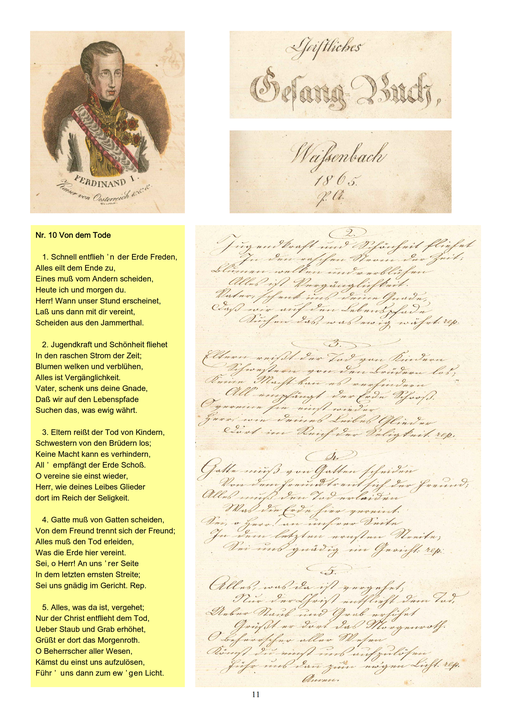 FERDINAND I.
Kaiser von Oesterreich
Geistliches
Gesang-Buch,
Wassenbach
1865.
P. A.
Nr. 10 Von dem Tode
1. Schnell entflieh ´n der Erde Freden,
Alles eilt dem Ende zu,
Eines muß vom Andern scheiden,
Heute ich und morgen du.
Herr! Wann unser Stund erscheinet,
Laß uns dann mit dir vereint,
Scheiden aus den Jammerthal.
2. Jugendkraft und Schönheit fliehet
In den raschen Strom der Zeit;
Blumen welken und verblühen,
Alles ist Vergänglichkeit.
Vater, schenk uns deine Gnade,
Daß wir auf den Lebenspfade
Suchen das, was ewig währt.
3. Eltern reißt der Tod von Kindern,
Schwestern von den Brüdern los;
Keine Macht kann es verhindern,
All ´ empfängt der Erde Schoß.
O vereine sie einst wieder,
Herr, wie deines Leibes Glieder
dort im Reich der Seligkeit.
4. Gatte muß von Gatten scheiden,
Von dem Freund trennt sich der Freund;
Alles muß den Tod erleiden,
Was die Erde hier vereint.
Sei, o Herr! An uns ´rer Seite
In dem letzten ernsten Streite;
Sei uns gnädig im Gericht. Rep.
5. Alles, was da ist, vergehet;
Nur der Christ entflieht dem Tod,
Ueber Staub und Grab erhöhet,
Grüßt er dort das Morgenroth.
O Beherrscher aller Wesen,
Kämst du einst uns aufzulösen,
Führ ´ uns dann zum ew ´gen Licht.
2.
Jugendkraft und Schönheit fliehet
In den raschen Strom der Zeit;
Blumen welken und verblühen
Alles ist Vergänglichkeit.
Vater, schenk uns deine Gnade,
Daß wir auf den Lebenspfade
Suchen das was ewig währt rep.
3.
Eltern reißt der Tod von Kindern
Schwestern von den Brüdern los;
Keine Macht kan es verhindern
All empfängt der Erde Schooß.
O vereine sie einst wieder
Herr wie deines Leibes Glieder
Dort im Reich der Seligkeit rep.
4.
Gatte muß von Gatten scheiden
Von dem Freund trent sich der Freund;
Alles muß den Tod erleiden
Was die Erde hier vereint.
Sei, o Herr! an unsrer Seite
In dem letzten ernsten Streite;
Sei uns gnädig im Gericht rep.
5.
Alles, was da ist vergehet,
Nur der Christ entflieht dem Tod,
Ueber Staub und Grab erhöhet
Grüßt er dort das Morgenroth.
O beherrscher aller Wesen
Kämst du einst uns aufzulösen
Führ uns dan zum ewgen Licht rep.
Amen.
11